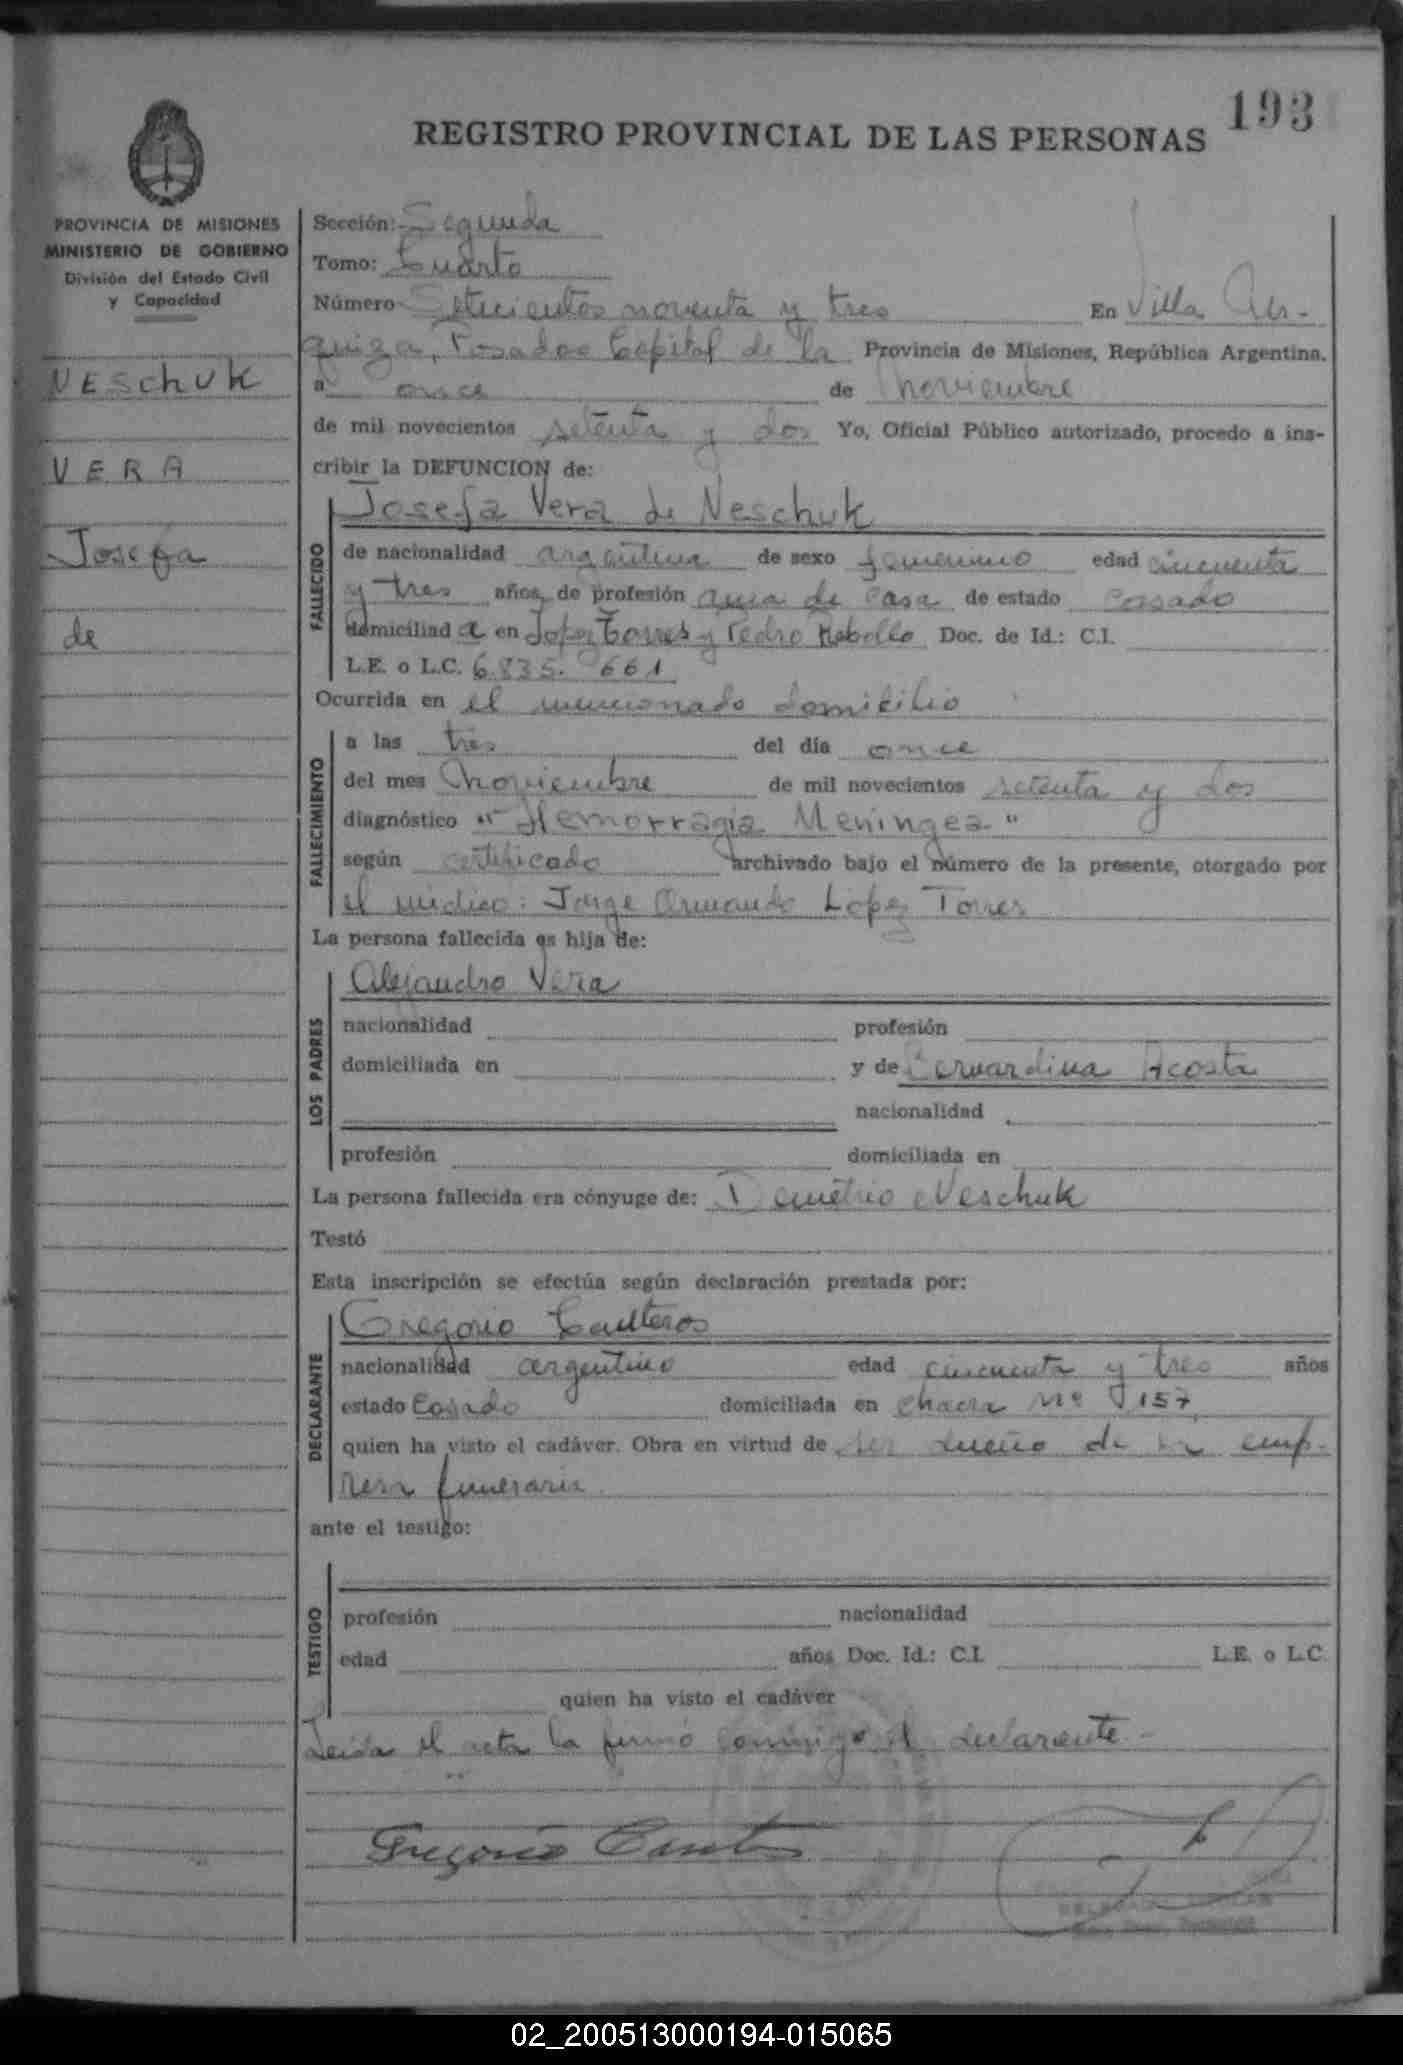 193
REGISTRO PROVINCIAL DE LAS PERSONAS
PROVINCIA DE MISIONES
MINISTERIO DE GOBIERNO
División del Estado Civil
y Capacidad
NESCHUK
VERA
Josefa
de
Sección: Segunda
Tomo: Cuarto
Número Setecientos noventa y tres En Villa Ur-
quiza, Posadas Capital de la Provincia de Misiones, República Argentina.
a once de noviembre
de mil novecientos setenta y dos Yo, Oficial Público autorizado, procedo a ins-
cribir la DEFUNCION de:
FALLECIDO
Josefa Vera de Neschuk
de nacionalidad argentina de sexo femenino edad cincuenta
y tres años, de profesión ama de casa de estado casado
domiciliad a en Lopez Torres y Pedro Rebollo Doc. de Id.: C.I.
L.E. o L.C. 6.835.661
Ocurrida en el mencionado domicilio
FALLECIMIENTO
a las tres del día once
del mes noviembre de mil novecientos setenta y dos
diagnóstico "Hemorragia Meningea"
según certificado archivado bajo el número de la presente, otorgado por
el médico: Jorge Armando Lopez Torres
La persona fallecida es hija de:
LOS PADRES
Alejandro Vera
nacionalidad profesión
domiciliada en y de Bernardina Acosta
nacionalidad
profesión domiciliada en
La persona fallecida era cónyuge de: Demetrio Neschuk
Testó
Esta inscripción se efectúa según declaración prestada por:
DECLARANTE
Gregorio Canteros
nacionalidad argentino edad cincuenta y tres años
estado Casado domiciliada en chacra Nº 157
quien ha visto el cadáver. Obra en virtud de ser dueño de la emp-
resa funeraria
ante el testigo:
TESTIGO
profesión nacionalidad
edad años Doc. Id.: C.I. L.E. o L.C.
quien ha visto el cadáver
Leida el acta la firmó conmigo el declarante.-
Gregorio
02_200513000194-015065